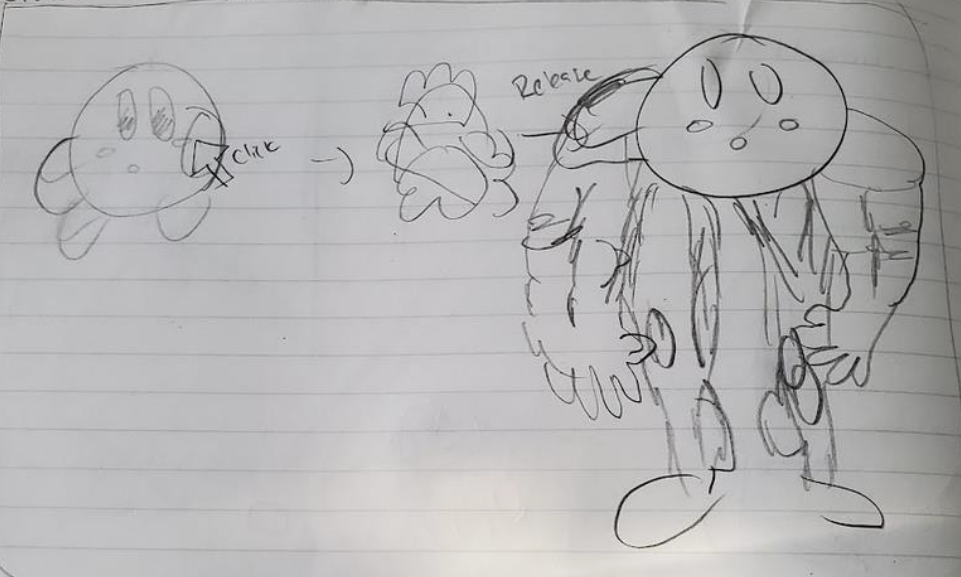 Click
Release